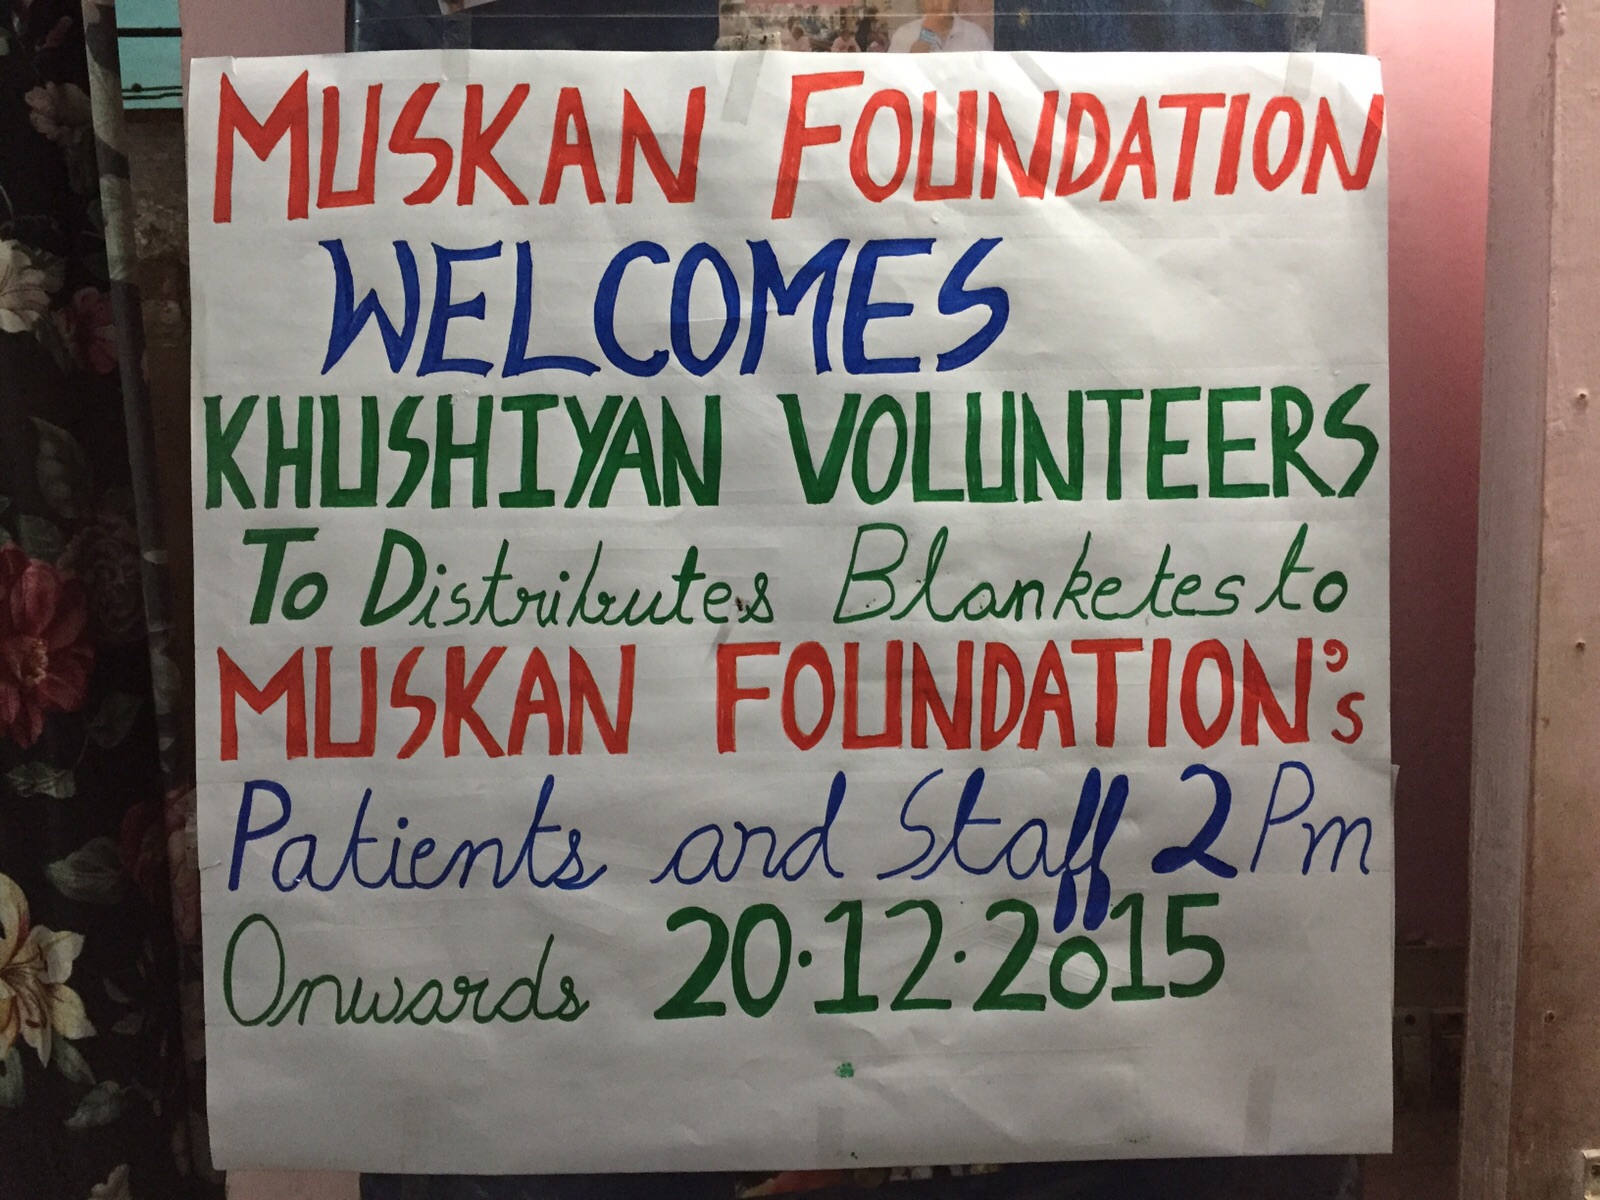 MUSKAN FOUNDATION
WELCOMES
KHUSHIYAN VOLUNTEERS
To Distributes Blanketes to
MUSKAN FOUNDATION's
Patients and Staff 2 Pm
Onwards 20.12.2015